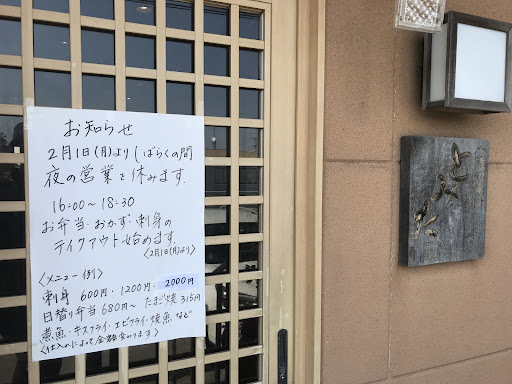 お知らせ
2月1日(月)よりしばらくの間
夜の営業を休みます.
16:00～18:30
お弁当・おかず・刺身の
テイクアウト始めます.
〈2月1日(月)より〉
〈メニュー例〉
刺身 600円・1200円・2000円
日替り弁当 680円～ たまご焼 315円
煮魚・キスフライ・エビフライ・焼魚 など
〈仕入れによって金額変わります〉